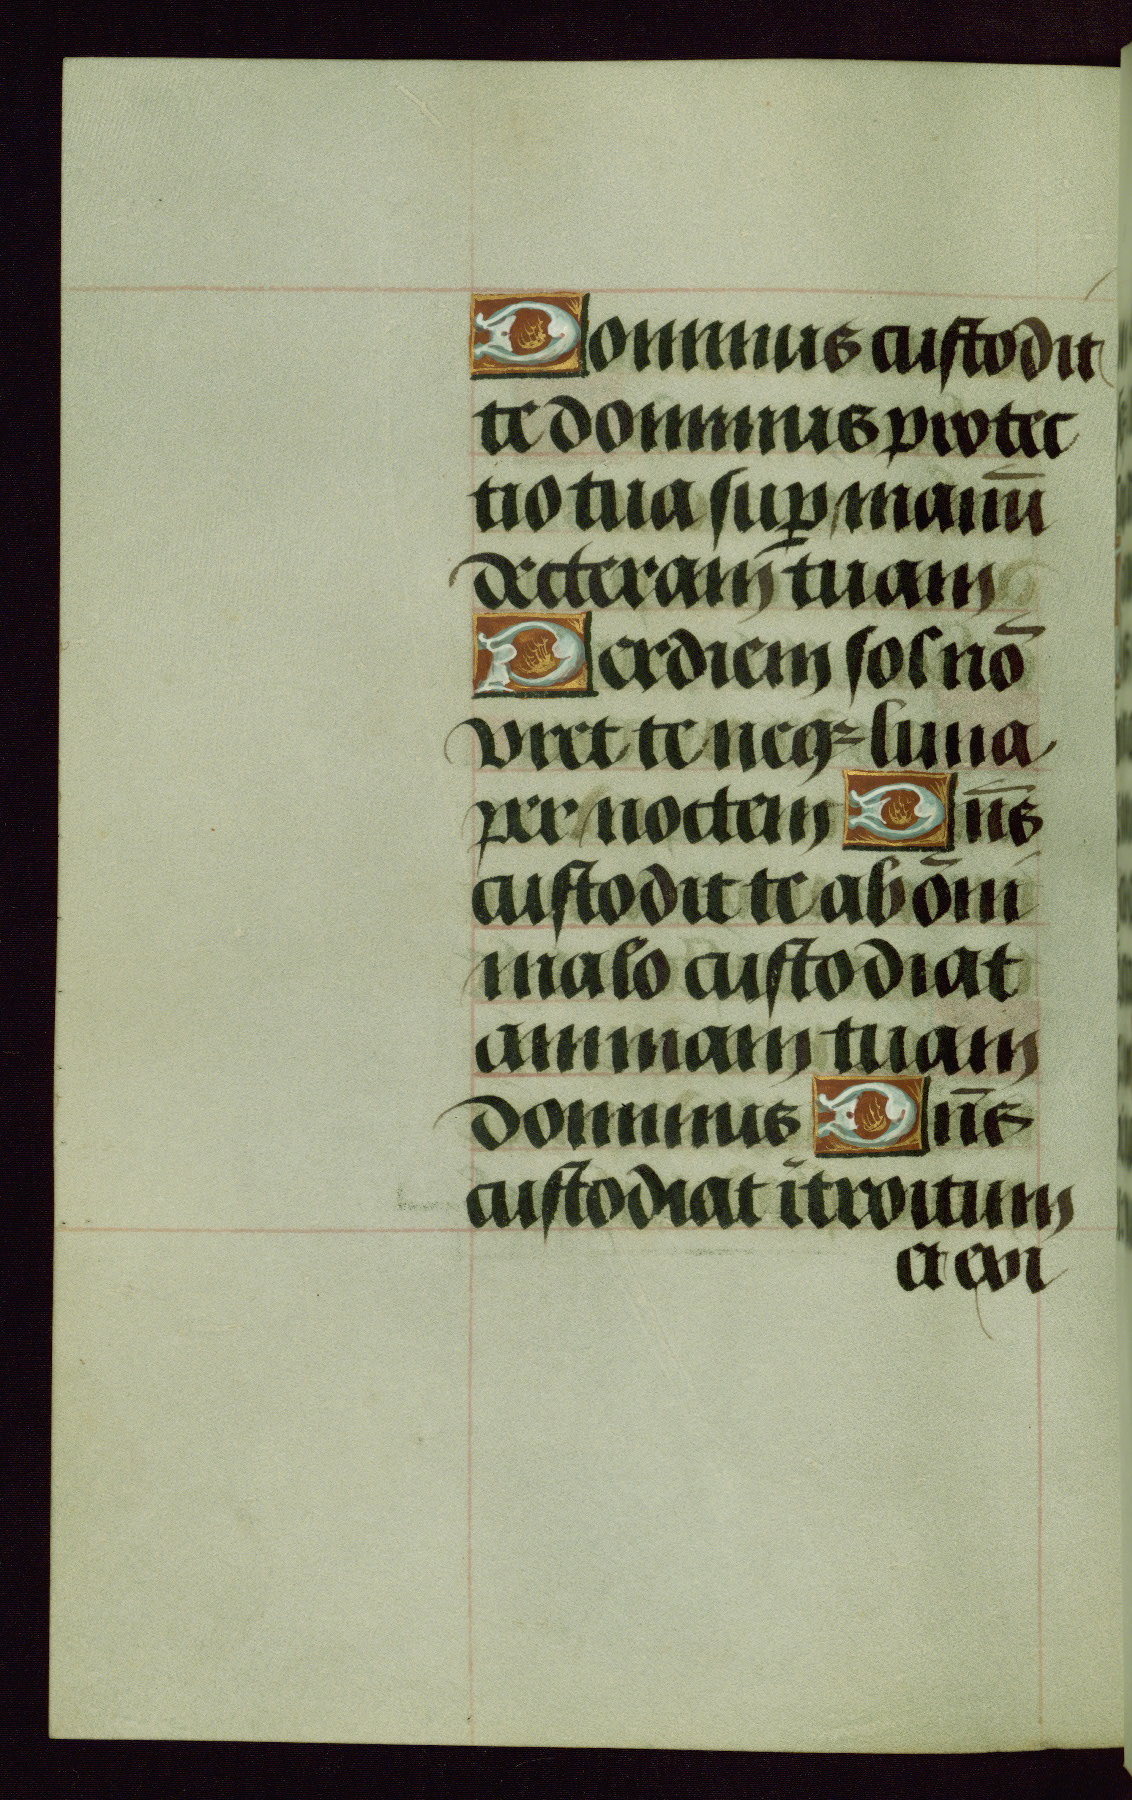 Dominus custodit
te dominus protec
tio tua sup manū
dexteram tuam
Per diem sol nō
vret te neqꝫ luna
per noctem Dn̄s
custodit te ab ōni
malo custodiat
animam tuam
dominus Dn̄s
custodiat ītroitum
et exi